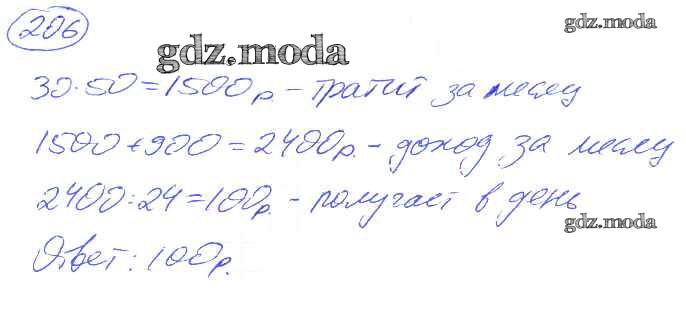 206
gdz.moda
gdz.moda
30·50=1500р. – тратит за месяц
1500+900=2400р. – доход за месяц
2400:24=100р. – получает в день
gdz.moda
Ответ: 100р.